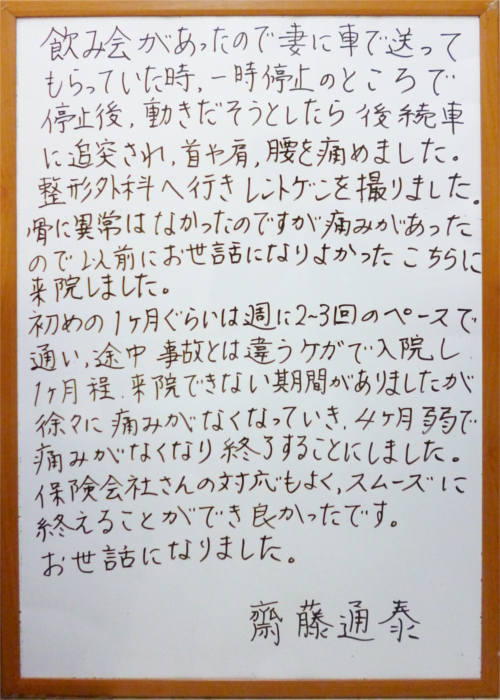 飲み会があったので妻に車で送って
もらっていた時,一時停止のところで
停止後,動きだそうとしたら後続車
に追突され,首や肩,腰を痛めました。
整形外科へ行きレントゲンを撮りました。
骨に異常はなかったのですが痛みがあった
ので以前にお世話になりよかったこちらに
来院しました。
初めの1ヶ月ぐらいは週に2~3回のペースで
通い,途中事故とは違うケガで入院し
1ヶ月程.来院できない期間がありましたが
徐々に痛みがなくなっていき,4ヶ月弱で
痛みがなくなり終了することにしました。
保険会社さんの対応もよく,スムーズに
終えることができ良かったです。
お世話になりました。
齋藤通泰